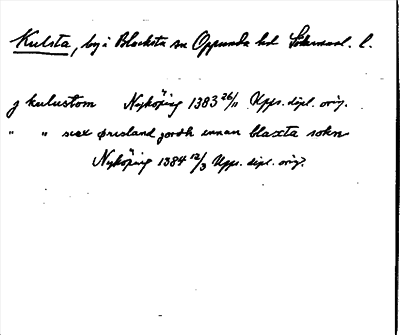 Kulsta, by i Blacksta sn Oppunda hd Södermanl. l.
j kulustom Nyköping 1383 26/11 Upps. dipl. orig.
" " sæx øresland jordh innan blaxta sokn
Nyköping 1384 12/3 Upps. dipl. orig.